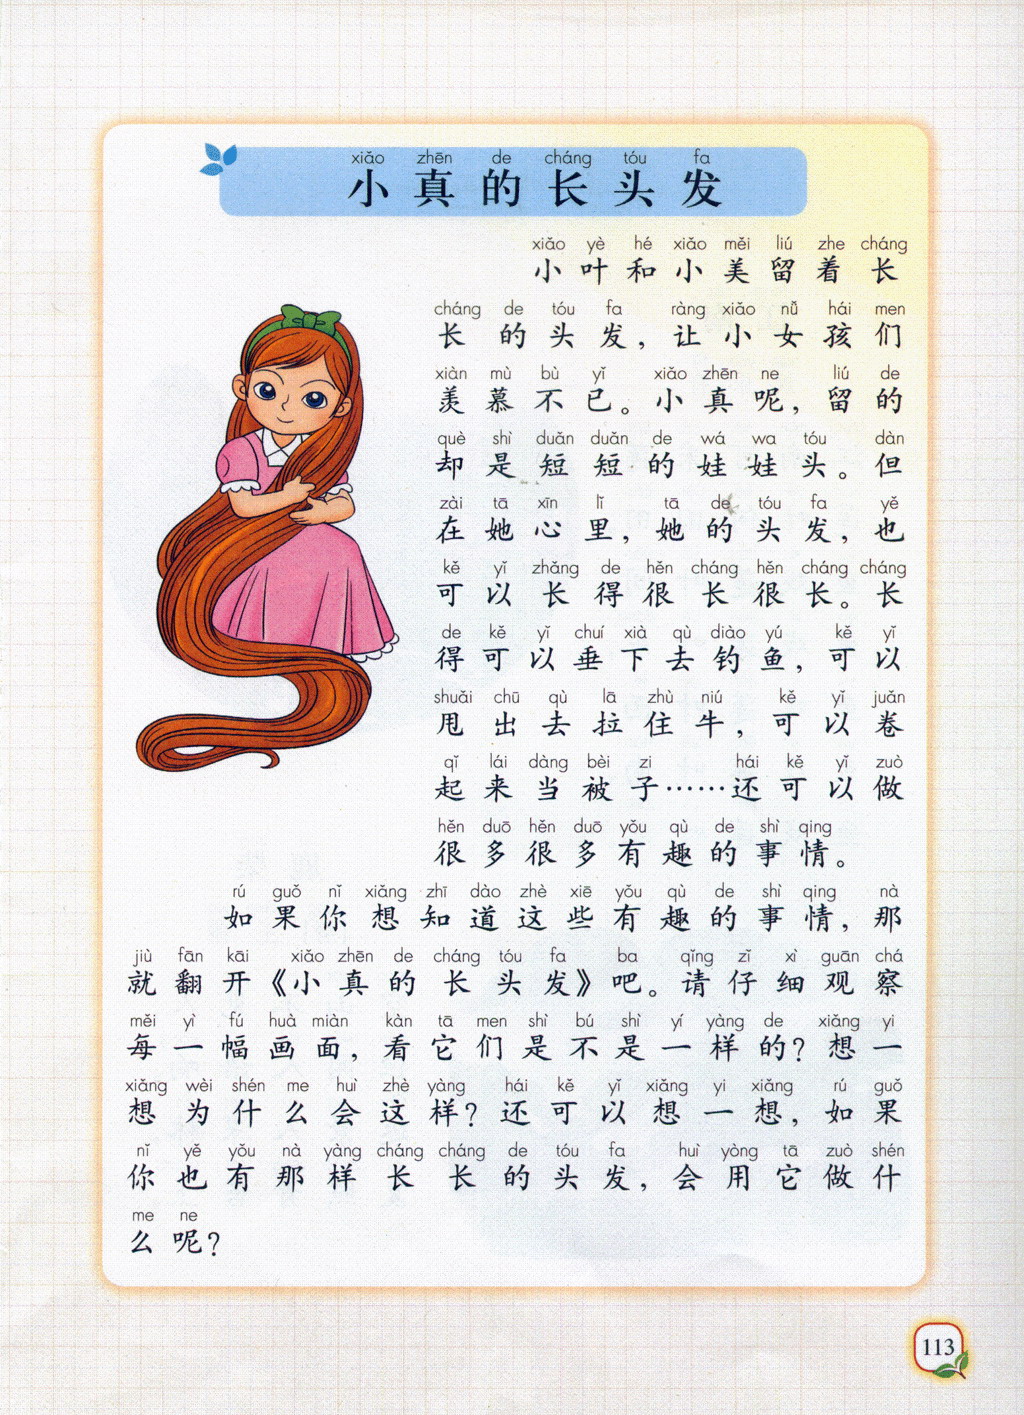 xiǎo zhēn de cháng tóu fa
小真的长头发
xiǎo yè hé xiǎo měi liú zhe cháng
小叶和小美留着长
cháng de tóu fa ràng xiǎo nǚ hái men
长的头发，让小女孩们
xiàn mù bù yǐ xiǎo zhēn ne liú de
羡慕不已。小真呢，留的
què shì duǎn duǎn de wá wa tóu dàn
却是短短的娃娃头。但
zài tā xīn lǐ tā de tóu fa yě
在她心里，她的头发，也
kě yǐ zhǎng de hěn cháng hěn cháng cháng
可以长得很长很长。长
de kě yǐ chuí xià qù diào yú kě yǐ
得可以垂下去钓鱼，可以
shuǎi chū qù lā zhù niú kě yǐ juǎn
甩出去拉住牛，可以卷
qǐ lái dàng bèi zi hái kě yǐ zuò
起来当被子……还可以做
hěn duō hěn duō yǒu qù de shì qing
很多很多有趣的事情。
rú guǒ nǐ xiǎng zhī dào zhè xiē yǒu qù de shì qing nà
如果你想知道这些有趣的事情，那
jiù fān kāi xiǎo zhēn de cháng tóu fa ba qǐng zǐ xì guān chá
就翻开《小真的长头发》吧。请仔细观察
měi yì fú huà miàn kàn tā men shì bú shì yí yàng de xiǎng yi
每一幅画面，看它们是不是一样的？想一
xiǎng wèi shén me huì zhè yàng hái kě yǐ xiǎng yi xiǎng rú guǒ
想为什么会这样？还可以想一想，如果
nǐ yě yǒu nà yàng cháng cháng de tóu fa huì yòng tā zuò shén
你也有那样长长的头发，会用它做什
me ne
么呢？
113